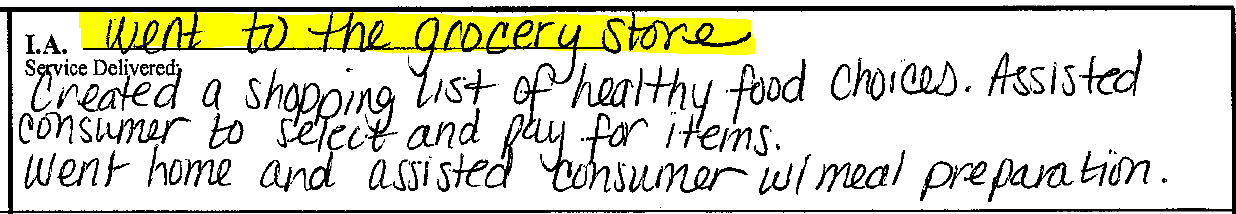 I.A. Went to the grocery store
Service Delivered:
Created a shopping list of healthy food choices. Assisted
consumer to select and pay for items.
Went home and assisted consumer w/ meal preparation.